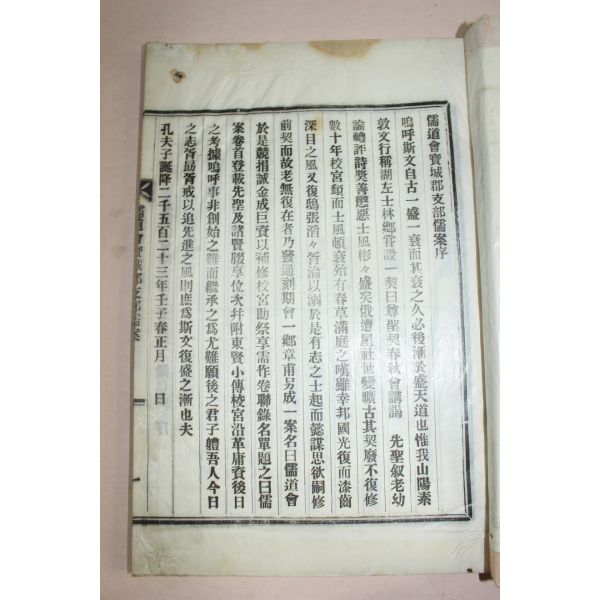 儒道會寶城郡支部儒案序
嗚呼斯文自古一盛一衰而其衰之久必後漸於盛天道也惟我山陽素
敦文行稱湖左士林鄉嘗設一契曰尊聖契春秋會講謁 先聖叙老幼
論禮評詩奬善懲惡士風彬々盛矣俄遭屋社世變曠古其契廢不復修
數十年校宮頹而士風頓衰殆有春草滿庭之嘆雖幸邦國光復而漆齒
深目之風又復鴟張滔々胥淪以溺於是有志之士起而懿謀思欲嗣修
前契而故老無復在者乃發通刻期會一鄉章甫另成一案名曰儒道會
於是競捐誠金成巨資以補修校宮助祭享需作卷聯錄名單題之曰儒
案卷首登載先聖及諸賢腏享位次幷附東賢小傳校宮沿革庸資後日
之考據嗚呼事非創始之難而繼承之爲尤難願後之君子體吾人今日
之志胥勗胥戒以追先進之風則庶爲斯文復盛之漸也夫
孔夫子誕降二千五百二十三年壬子春正月 日
儒道會寶城郡支部儒案
一